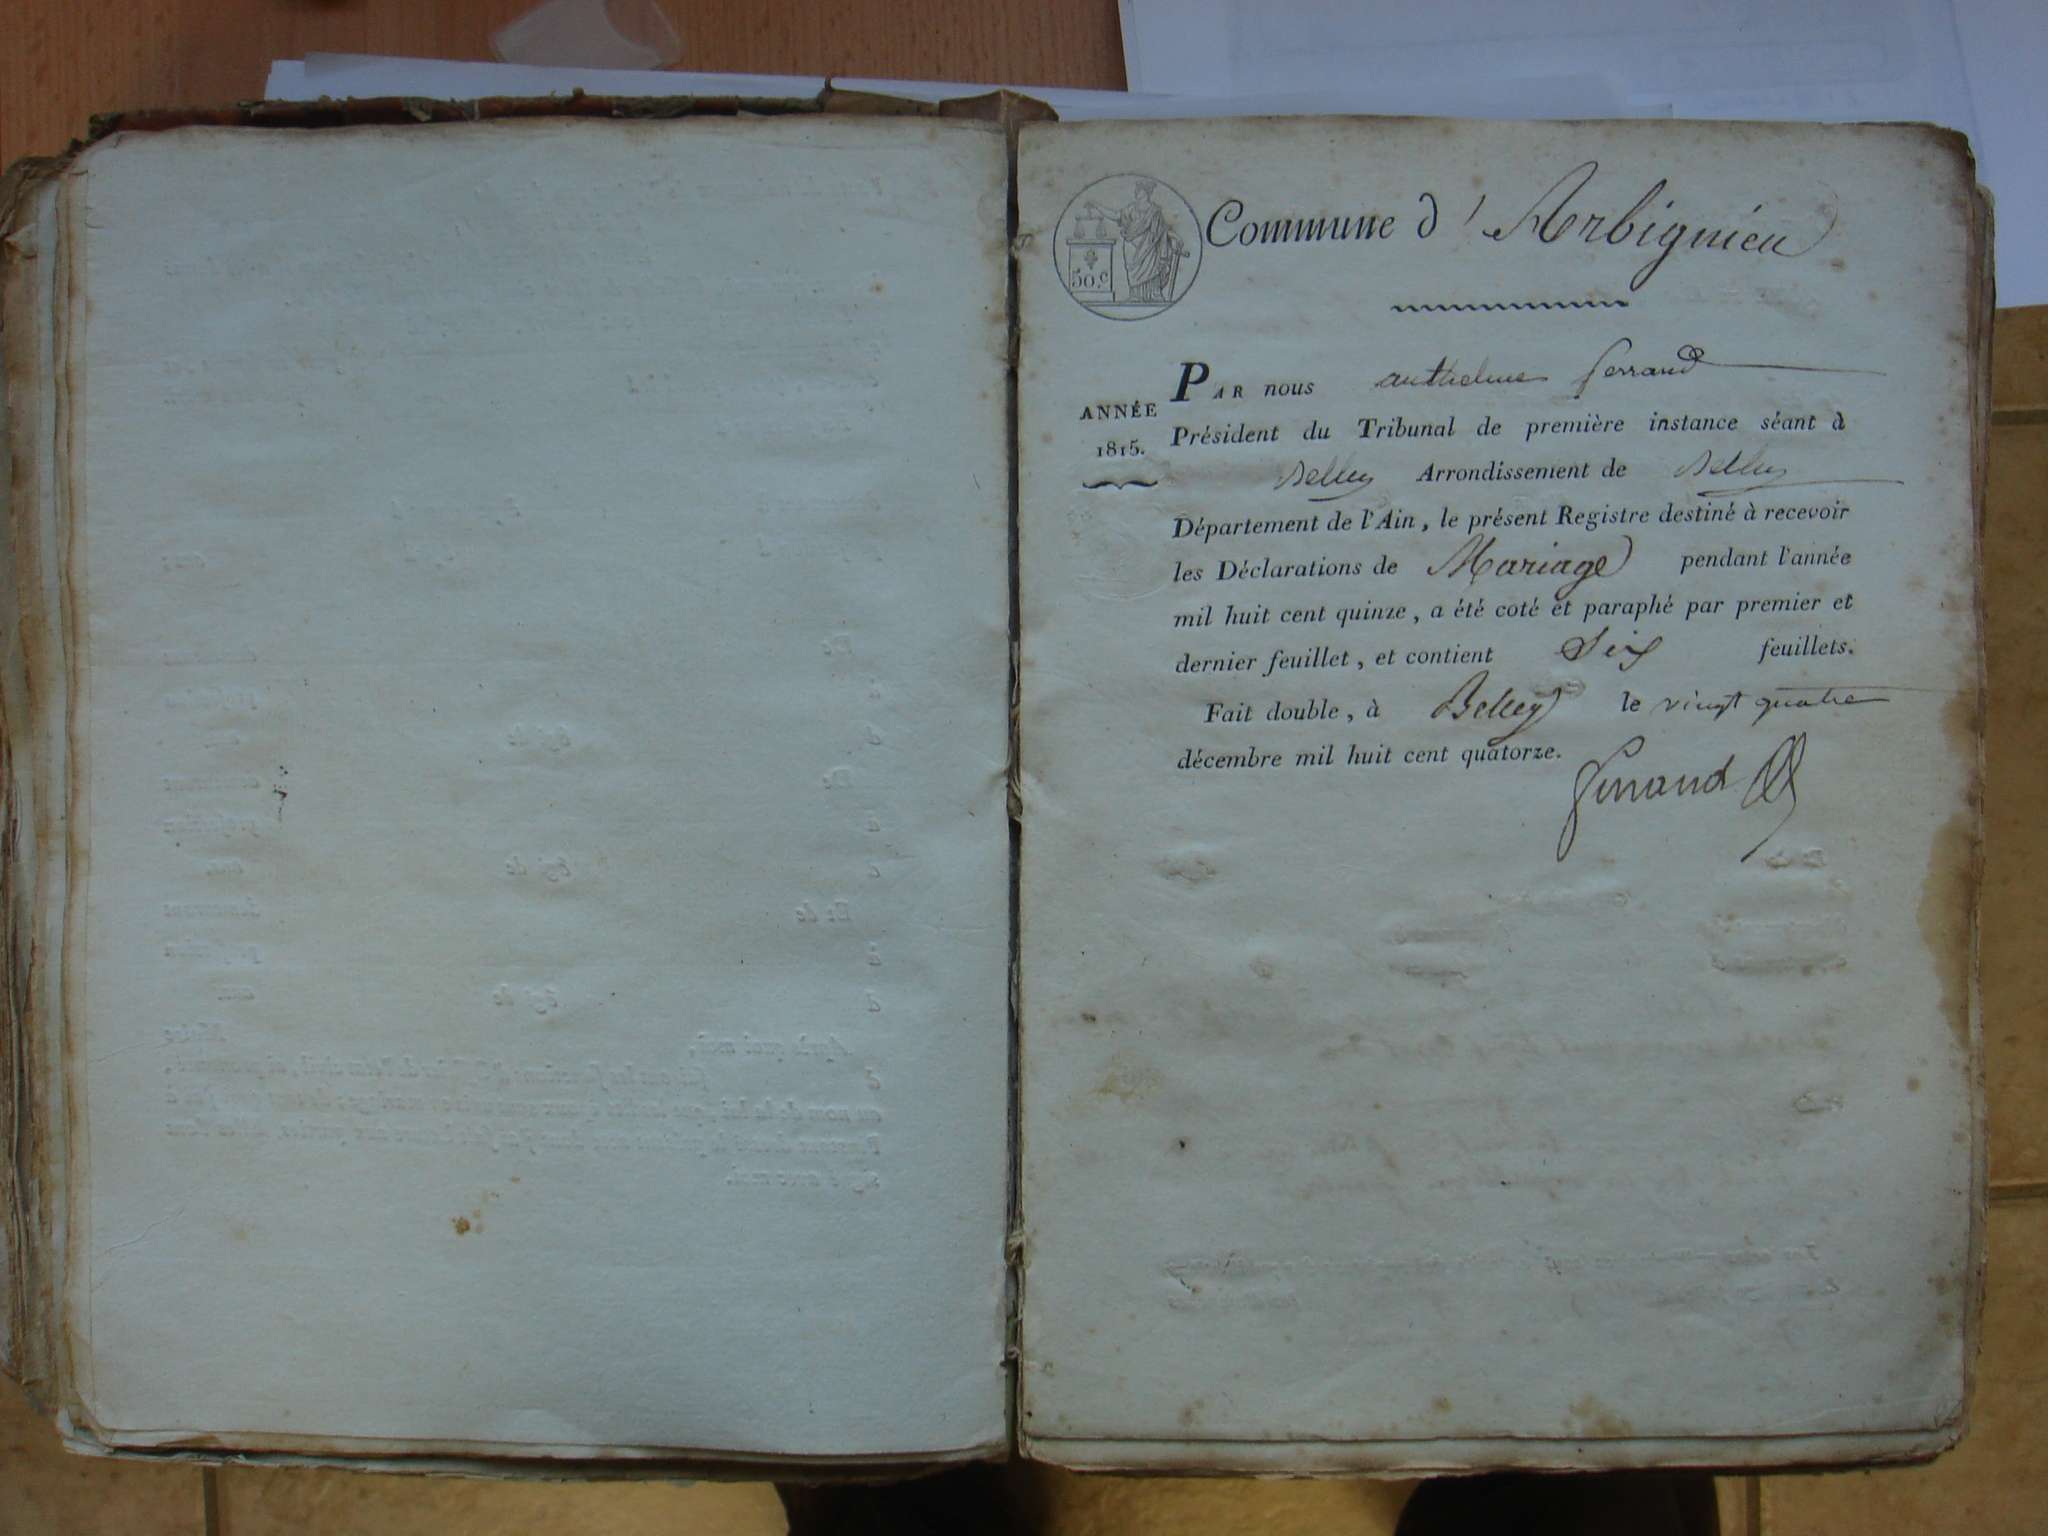 Commune d'Arbignieu
50.c
ANNÉE
1815.
PAR nous anthelme ferrand
Président du Tribunal de première instance séant à
Belley Arrondissement de Belley
Département de l'Ain, le présent Registre destiné à recevoir
les Déclarations de Mariage pendant l'année
mil huit cent quinze, a été coté et paraphé par premier et
dernier feuillet, et contient Six feuillets.
Fait double, à Belley le vingt quatre
décembre mil huit cent quatorze.
ferrand